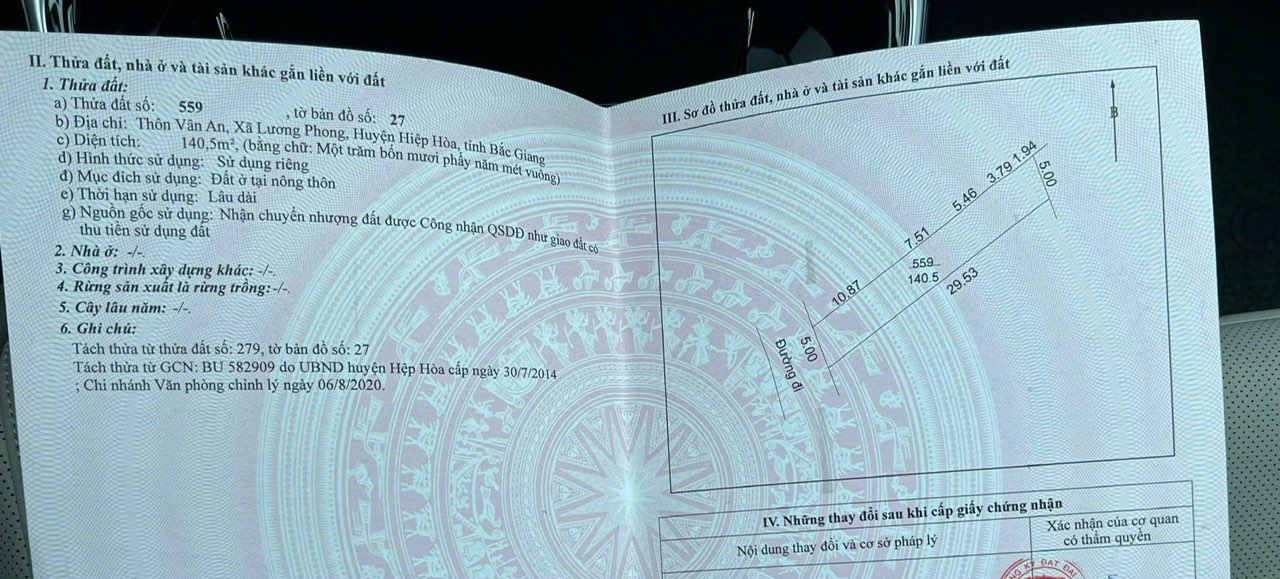 II. Thửa đất, nhà ở và tài sản khác gắn liền với đất
1. Thửa đất:
a) Thửa đất số: 559 , tờ bản đồ số: 27
b) Địa chỉ: Thôn Vân An, Xã Lương Phong, Huyện Hiệp Hòa, tỉnh Bắc Giang
c) Diện tích: 140,5m², (bằng chữ: Một trăm bốn mươi phẩy năm mét vuông)
d) Hình thức sử dụng: Sử dụng riêng
đ) Mục đích sử dụng: Đất ở tại nông thôn
e) Thời hạn sử dụng: Lâu dài
g) Nguồn gốc sử dụng: Nhận chuyển nhượng đất được Công nhận QSDĐ như giao đất có
thu tiền sử dụng đất
2. Nhà ở: -/-.
3. Công trình xây dựng khác: -/-.
4. Rừng sản xuất là rừng trồng: -/-.
5. Cây lâu năm: -/-.
6. Ghi chú:
Tách thửa từ thửa đất số: 279, tờ bản đồ số: 27
Tách thửa từ GCN: BU 582909 do UBND huyện Hệp Hòa cấp ngày 30/7/2014
; Chi nhánh Văn phòng chỉnh lý ngày 06/8/2020.
III. Sơ đồ thửa đất, nhà ở và tài sản khác gắn liền với đất
B
1.94
3.79
5.00
5.46
7.51
559
140.5
10.87
29.53
5.00
Đường đi
IV. Những thay đổi sau khi cấp giấy chứng nhận
Nội dung thay đổi và cơ sở pháp lý
Xác nhận của cơ quan
có thẩm quyền
KÝ ĐẤT ĐAI